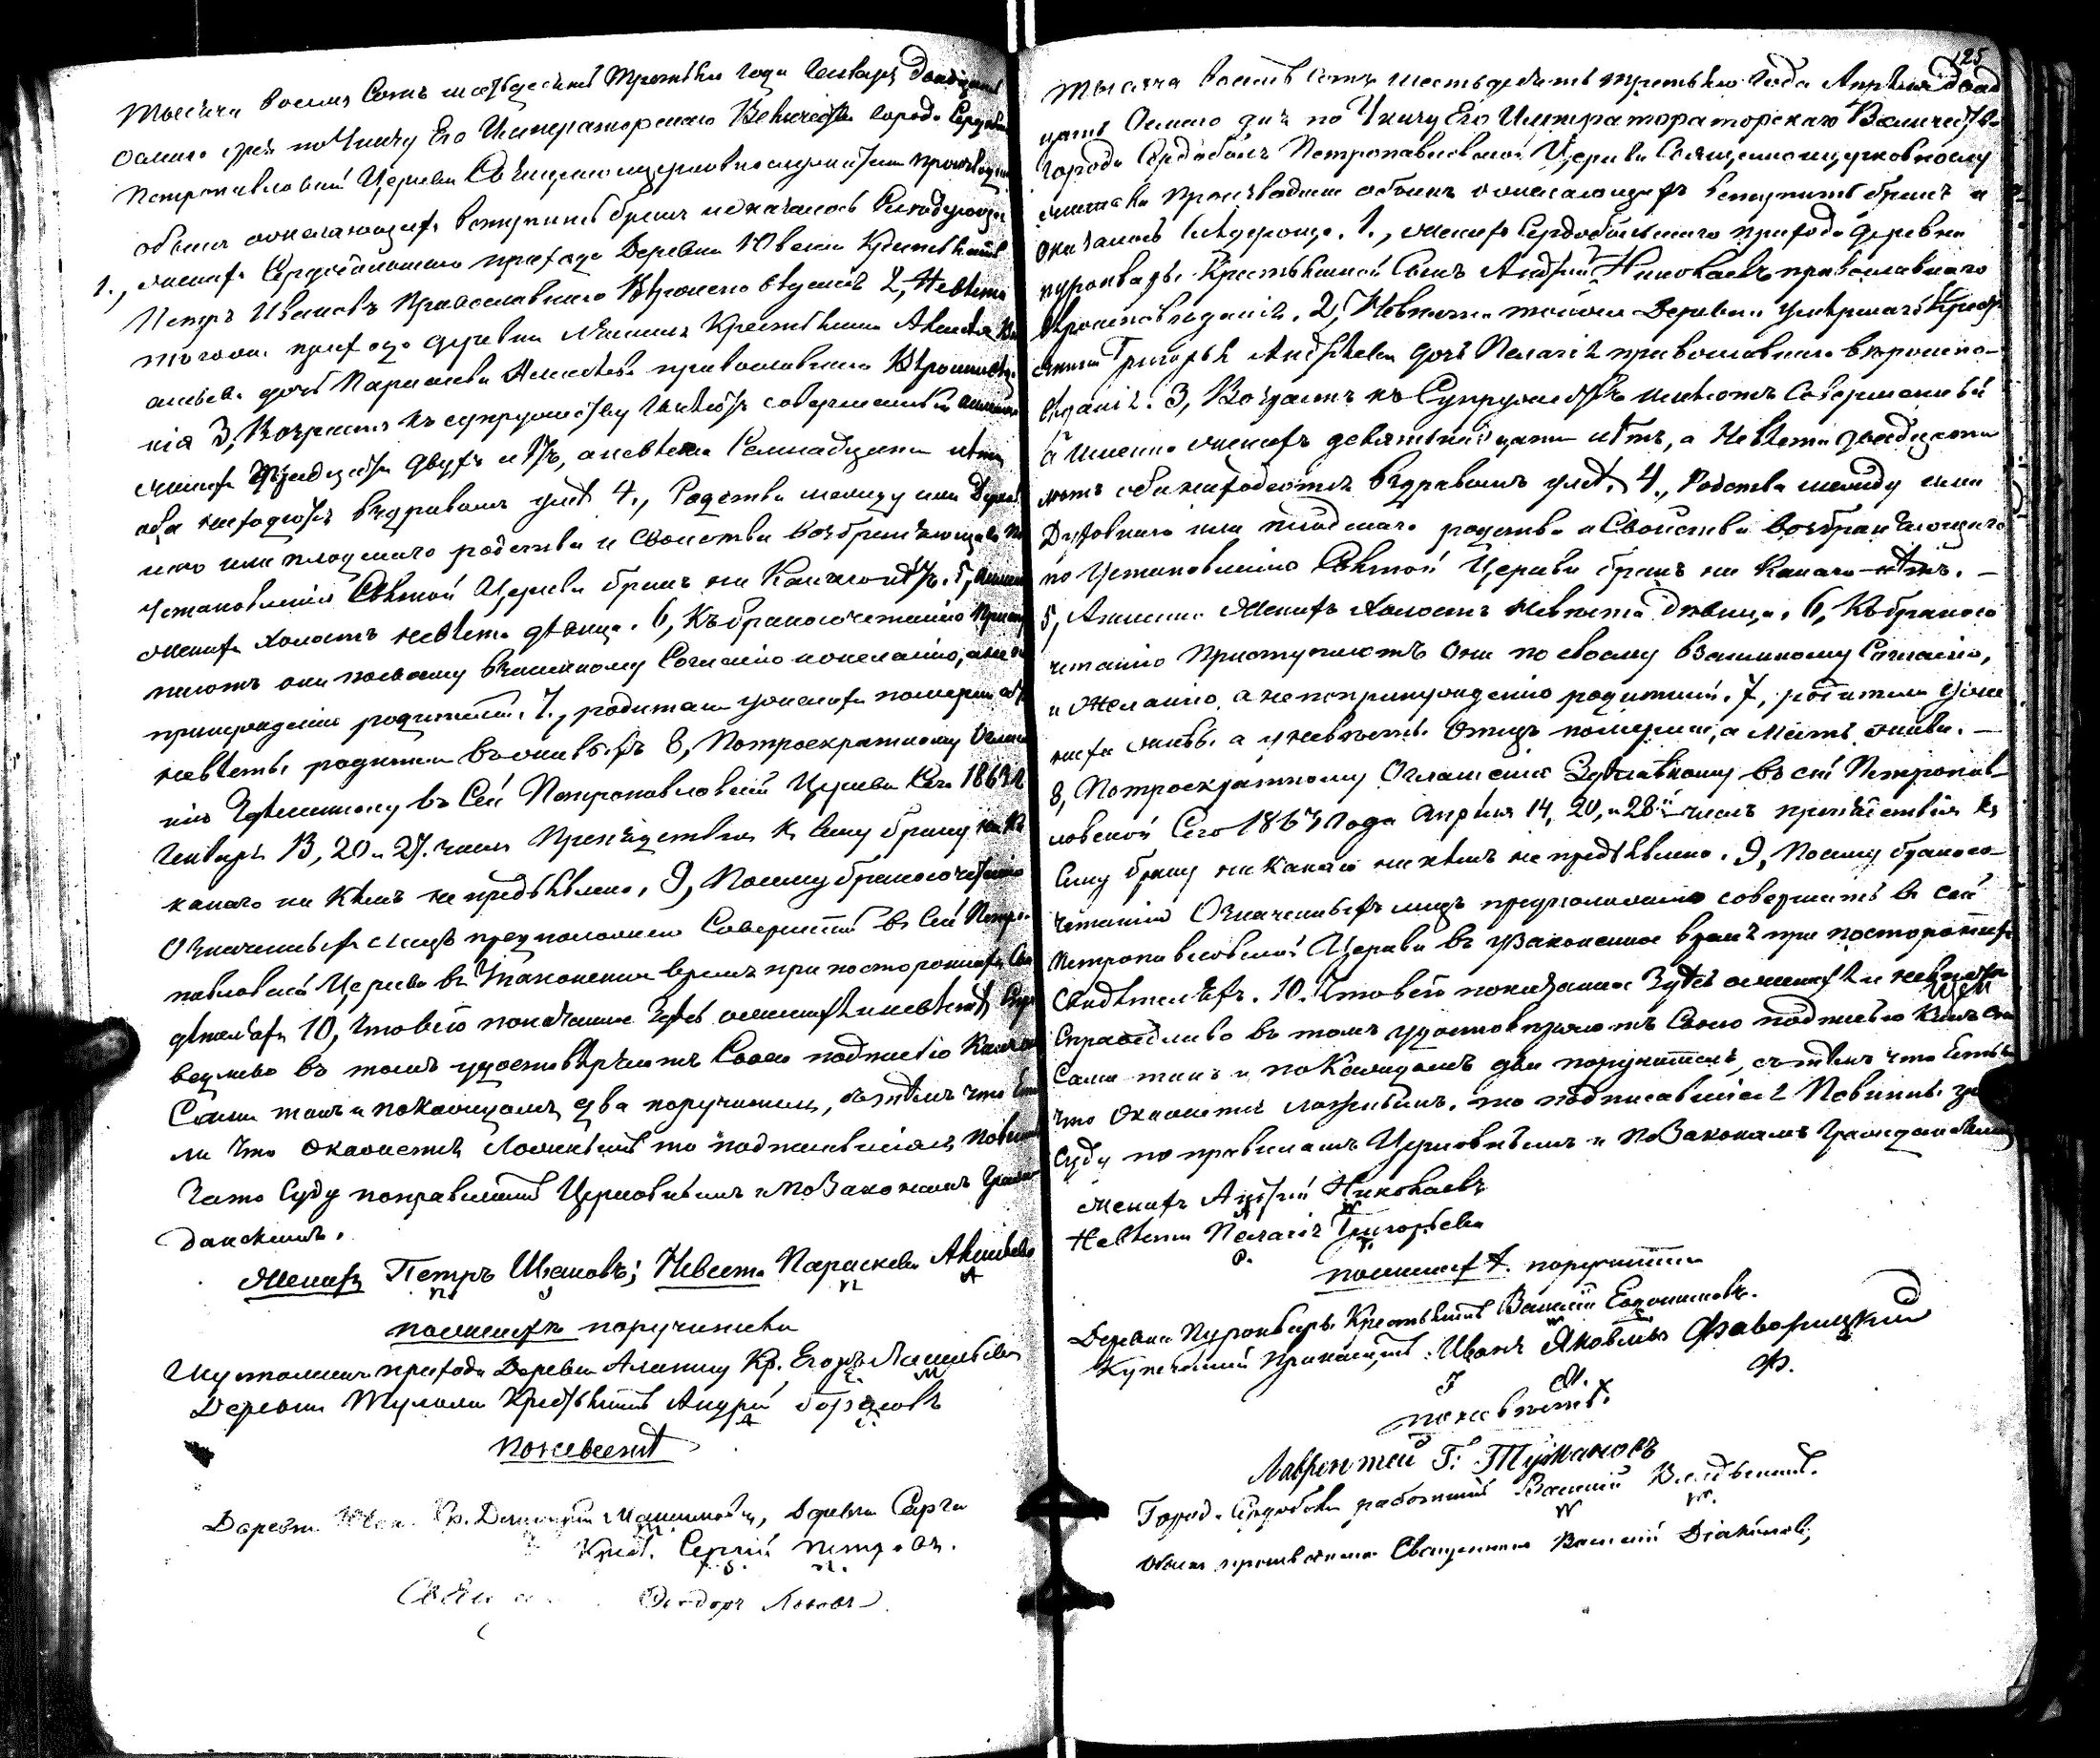 Тысяча восемь сотъ шестьдесятъ третьяго года Генваря двадцать
осьмаго дня по Указу Его Императорскаго Величества города Сердоболя
Петропавловской Церкви Священноцерковнослужители производили
обыскъ о желающихъ вступить бракъ и оказалось следующее
1., женихъ Сердобольскаго прихода деревни Крестьянинъ
Петръ Ивановъ Православнаго Вѣроисповѣданія 2, Невѣста
тогоже прихода деревни Крестьянина
дочь Параскева православнаго Вѣроисповѣда-
нія 3, Возрастъ къ супружеству имѣютъ совершенный
женихъ двухъ лѣтъ, а невѣста Семнадцати лѣтъ
оба находются въ здравомъ умѣ 4., Родства между ими Духов-
наго или плодскаго родства и Свойства возбраняющаго по
Установленію Святой Церкви бракъ ни Какаго нѣтъ. 5,
женихъ холостъ невѣста дѣвица. 6, Къ бракосочетанію приступ-
паютъ они по своему взаимному Согласію и желанію, а не по
принужденію родителей. 7., родители у жениха померши а у
невѣсты родители въ живыхъ 8, По троекратному Оглаше-
нію Здѣланному въ Сей Петропавловской Церкви Сего 1863 г.
Генваря 13, 20 и 27. числъ Препятствія К Сему браку ни ка-
какаго ни кѣмъ не предъявлено, 9, Посему бракосочетаніе
Означенныхъ лицъ предположено Совершить въ Сей Петро-
павловской Церкви въ Узаконенное время при постороннихъ Сви-
дѣтеляхъ 10, Что всё показанное Здѣсь о женихѣ и невѣстѣ Спра-
ведливо въ томъ удостовѣряютъ Своею подписью Какъ они
Сами такъ и по каждомъ два поручителя, съ тѣмъ что Ест-
ли Что окажется Ложнымъ то подписавшіеся повинны
Зато Суду по правиламъ Церковнымъ и по Законамъ Граж-
данскимъ.
Женихъ Петръ Ивановъ; Невеста Параскева
по женихѣ поручители
прихода Деревни Кр. Егоръ
Деревни Крестьянинъ Андрей
по невестѣ
Деревни Кр. Дмитрій деревни
Крест. Сергій Петровъ.
Феодоръ
125
Тысяча восемь сотъ шестьдесятъ третьяго года Апрѣля двад
цать Осьмаго дня по Указу Его Императораторскаго Величества
города Сердоболь Петропавловской Церкви Священноцерковнослу
жители производили обыскъ о желающихъ вступить бракъ и
оказалось слѣдующе. 1., женихъ Сердобольскаго прихода деревни
Крестьянской Сынъ Андрей Николаевъ православнаго
Вѣроисповѣданія. 2, Невѣста тойже Деревни умершаго Крест-
янина Григорья Андреева дочь Пелагія православнаго вѣроиспо-
вѣданія. 3, Возрастъ къ Супружеству имѣютъ Совершенный
а именно женихъ девятнадцати лѣтъ, а Невѣста двадцати
лѣтъ оба находются въ здравомъ умѣ. 4., Родства между ими
Духовнаго или плодскаго родства и Свойства возбраняющаго
по Установленію Святой Церкви бракъ ни Какаго нѣтъ. —
5, А именно Женихъ Холостъ невѣста Дѣвица, 6, Къ бракосо
читанію приступаютъ Они по своему взаимному Согласію,
и Желанію, а не по принужденію родителей. 7, родители у же
ниха живы. а у невѣсты Отецъ померши, а Мать жива. —
8, По троекратному Оглашенію Здѣланному въ сей Петропав-
ловской Сего 1863 Года Апрѣля 14, 20, и 28 числъ препятствія къ
Сему браку ни Какаго ни кѣмъ не предъявлено. 9, Посему бракосо-
четаніе Означенныхъ лицъ предположено совершить въ сей
Петропавловской Церкви въ узаконенное время при постороннихъ
Свидѣтеляхъ. 10. Что всё показанное Здѣсь о женихѣ и невѣстѣ
Справедливо въ томъ удостовѣряютъ Своею подписью Какъ они
Сами такъ и по Каждомъ два поручителя, съ тѣмъ что Естьли
что Окажется ложнымъ. то подписавшіеся Повинны за то
Суду по правиламъ Церковнымъ и по Законамъ Гражданскимъ
Женихъ Андрей Николаевъ
Невѣста Пелагія Григорьева
по женихѣ. поручители
Деревни Крестьянинъ Василій
Купеческій прикащикъ: Иванъ Яковлевъ Фаворицкій
по невѣстѣ.
Лаврентей Г. Тужановъ
Города Сердоболя работникъ Василій
Обыскъ производилъ Священникъ Василій